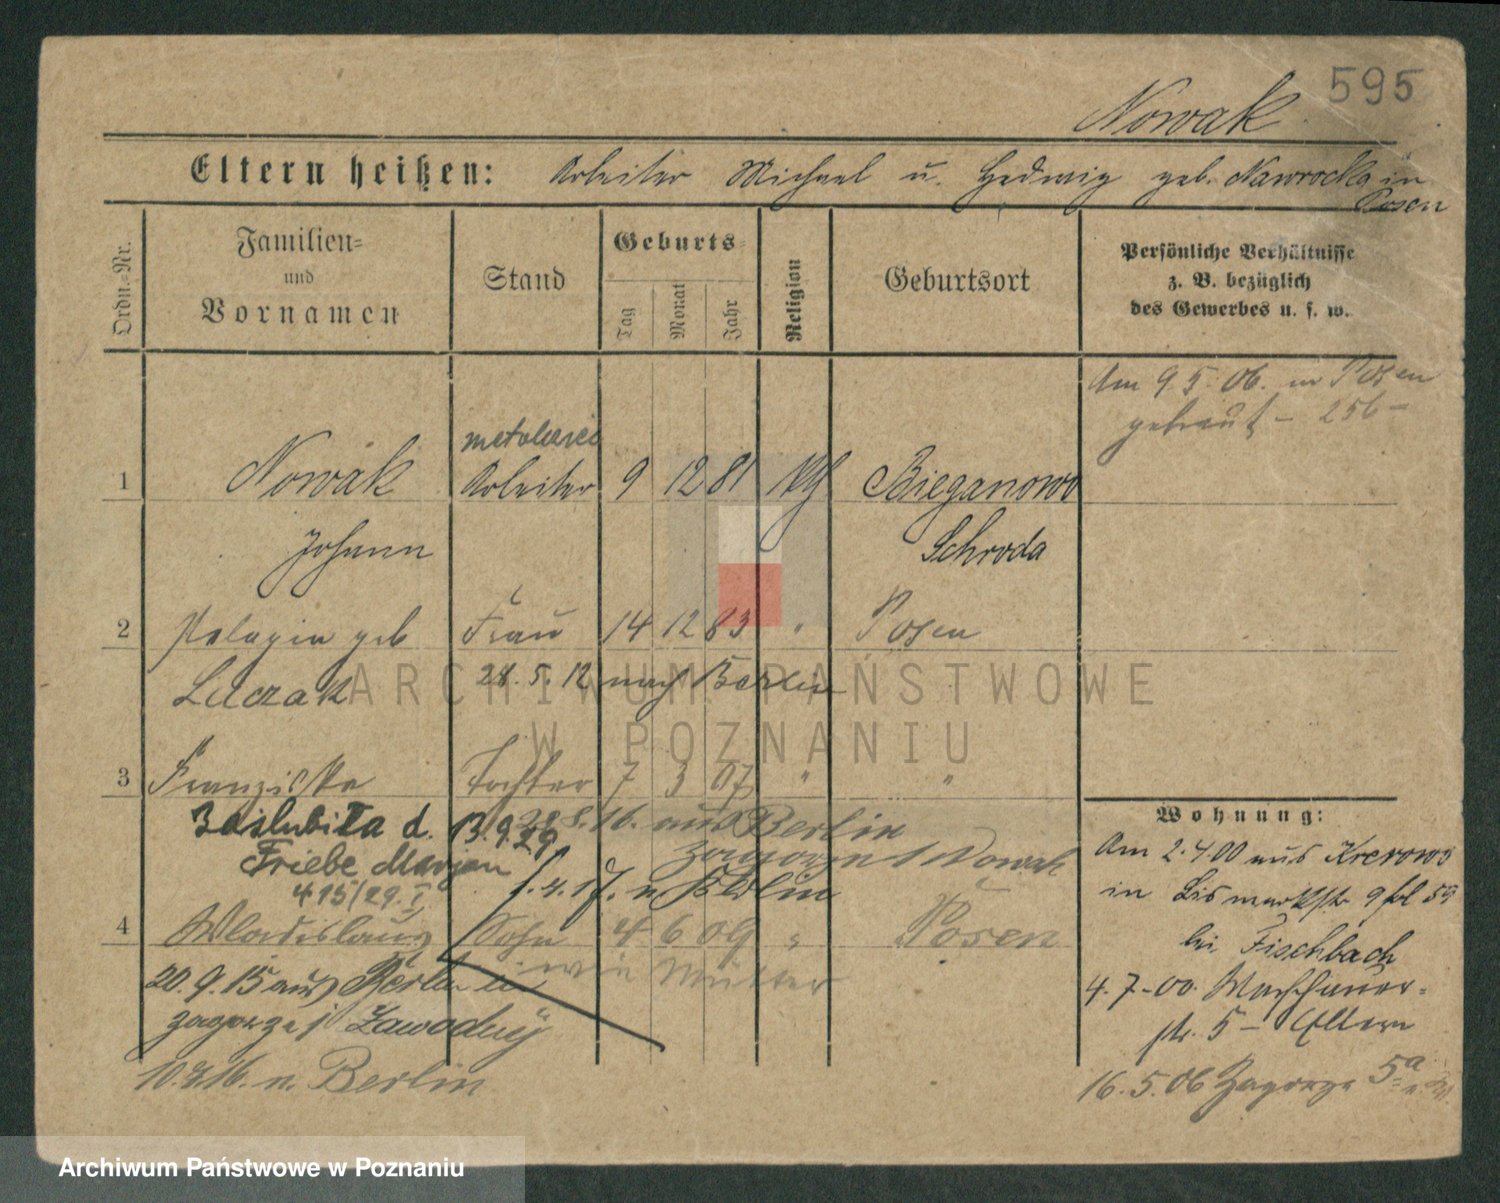 595
Nowak
Eltern heißen: Arbeiter Michael u. Hedwig geb. Nawrocka in
Posen
Ordn.-Nr.
Familien-
und
Vornamen
Stand
Geburts-
Tag
Monat
Jahr
Religion
Geburtsort
Persönliche Verhältnisse
z. B. bezüglich
des Gewerbes u. s. w.
Am 9.5.06. in Posen
getraut - 256 -
1 Nowak Arbeiter 9 12 81 Bieganowo
Johann Schroda
2 Pelagia geb Frau 14 12 83 " Posen
Luczak 28.5.12 nach Berlin
3 Franziska Tochter 7 3 07 " "
Zaślubiła d. 13.9.29
28.8.16. aus Berlin
Friebe Marjan
415/29. I
n. Berlin
4 Wladislaus Sohn 4 6 09 " Posen
wie Mutter
20.9.15 aus Berlin
Zagorze Zawodny
10.8.16. n. Berlin
Wohnung:
Am 2.4.00 aus Krerowo
in Bismarckstr 9
bei Fischbach
4.7.00.
str. 5 - Eltern
16.5.06 Zagorze 5a
ARCHIWUM PAŃSTWOWE
W POZNANIU
Archiwum Państwowe w Poznaniu